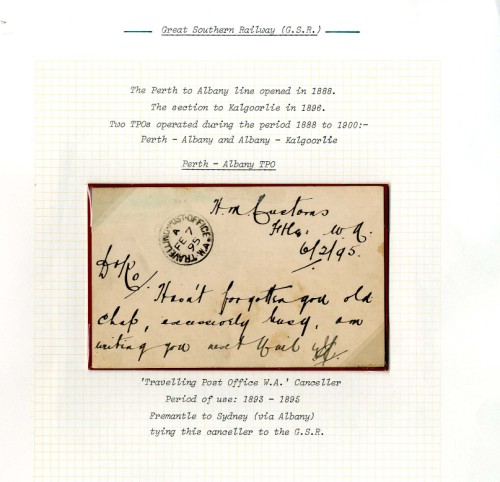 Great Southern Railway (G.S.R.)
The Perth to Albany line opened in 1888.
The section to Kalgoorlie in 1896.
Two TPOs operated during the period 1888 to 1900:-
Perth - Albany and Albany - Kalgoorlie
Perth - Albany TPO
H.M Customs
Ftle, W.A.
6/2/95.
TRAVELLING POST-OFFICE W.A.
A
FE 7
95
Hasn't forgotten you old
chap, excessively busy, am
writing you next Mail
'Travelling Post Office W.A.' Canceller
Period of use: 1893 - 1895
Fremantle to Sydney (via Albany)
tying this canceller to the G.S.R.